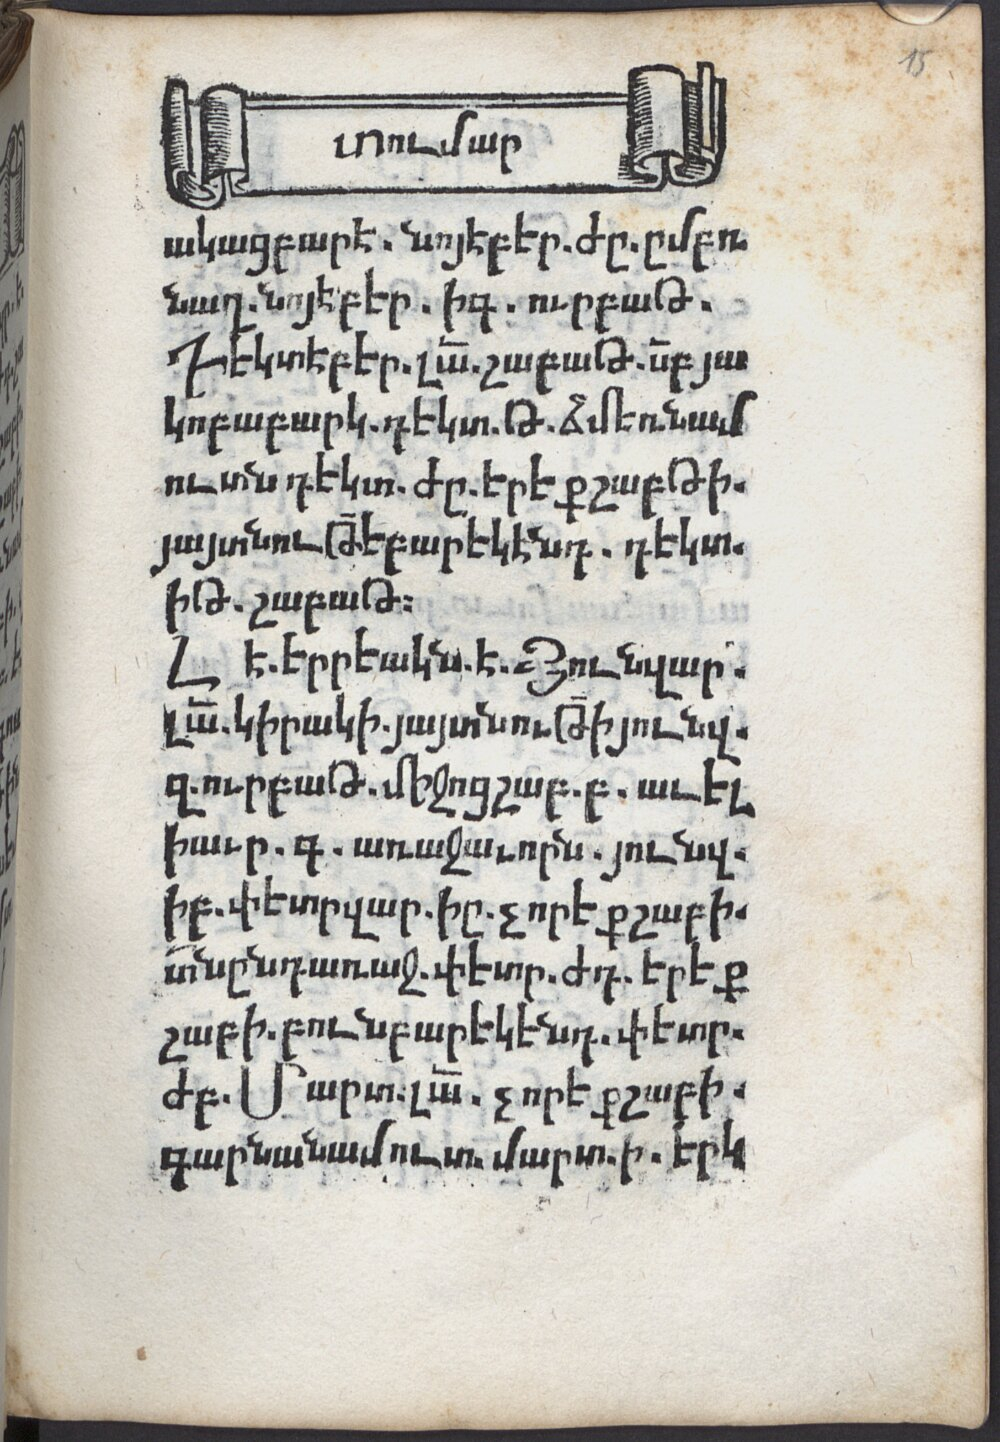 15
տումար
ակացբարէ. նոյէբեր. ժը. ըմբռ
նաղ. նոյէբէր. իգ. ուրբաթ.
Դէկտէբէր. լա̅. շաբաթ. ս̅բ յա
կոբաբարկ. դէկտ. թ. ձմէռնամ
ուտն դէկտ. ժը. երէքշաբթի.
յայտնութ̅ե բարէկէնդ. դէկտ.
իթ. շաբաթ։
Հ է. երրեակն. է. Յունվար.
լա̅. կիրակի. յայտնութ̅ի յունվ.
զ. ուրբաթ. միջոցշաբ. բ. աւէլ
իաւր. գ. առաջաւորն. յունվ.
իբ. փետրվար. իը. չորէքշաբի.
տ̅նընդառաջ. փետր. ժդ. երէք
շաբի. բունբարէկէնդ. փետր.
ժբ. Մարտ. լա̅. չորէքշաբի.
գարնանամուտ. մարտ. ի. երկ